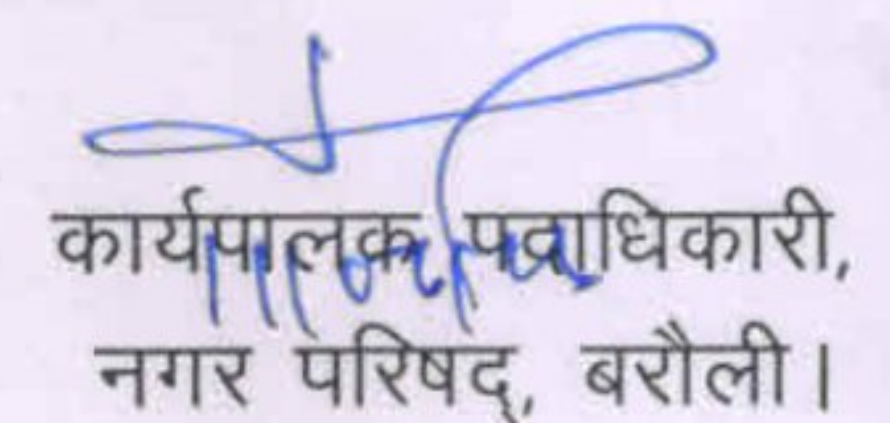 कार्यपालक पदाधिकारी,
नगर परिषद्, बरौली।